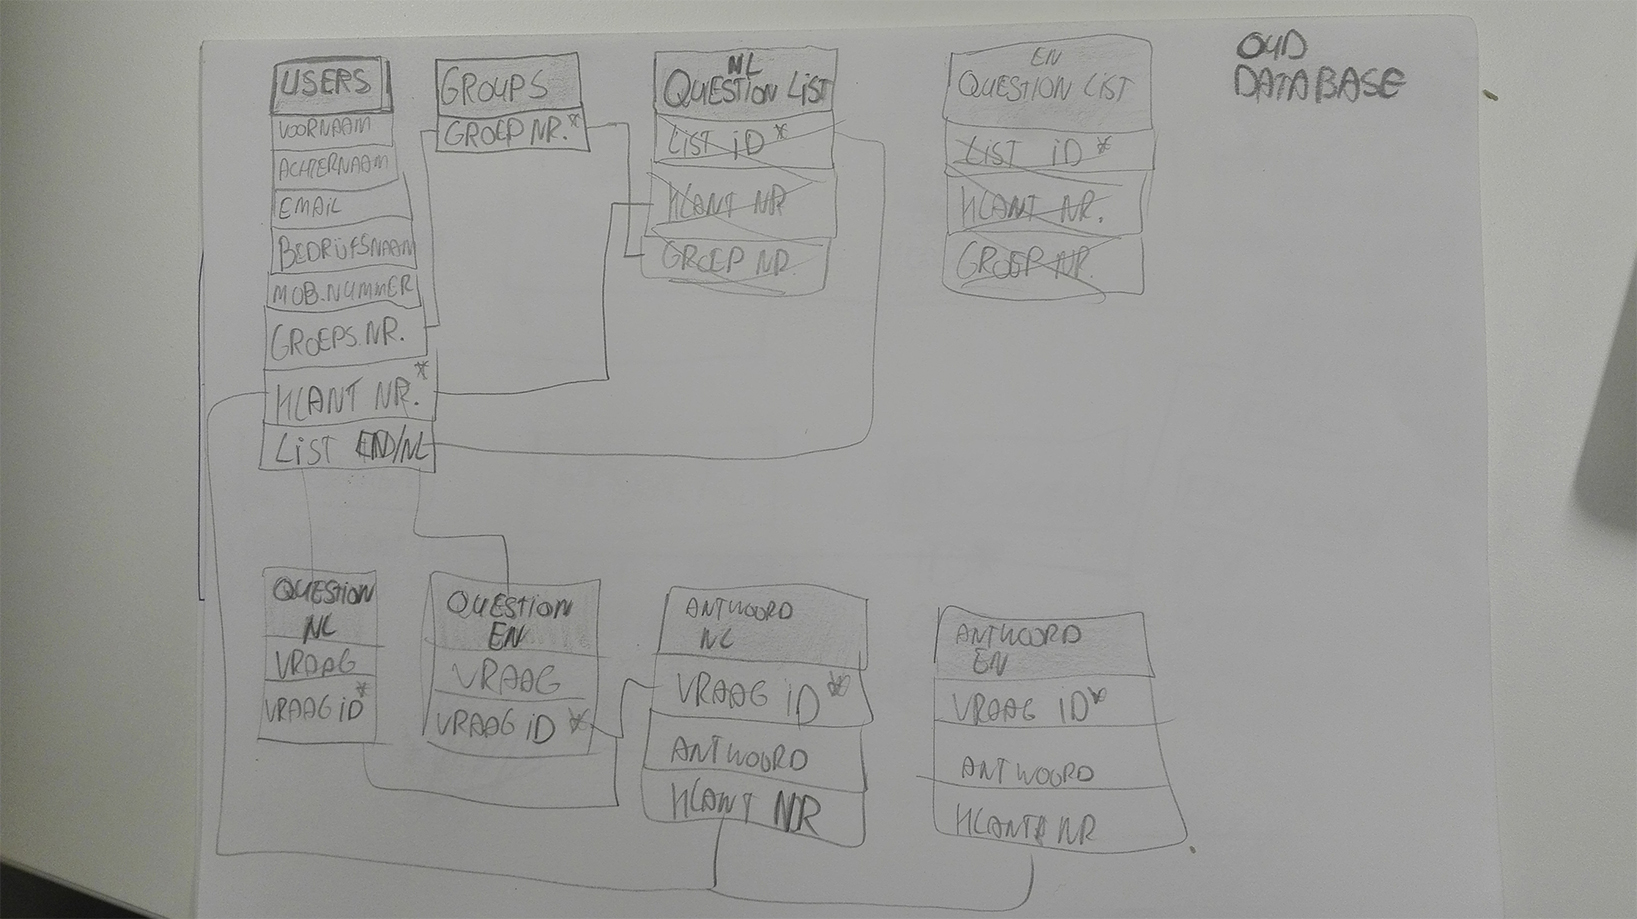 USERS
VOORNAAM
ACHTERNAAM
EMAIL
BEDRIJFSNAAM
MOB.NUMMER
GROEPS.NR.
KLANT NR.*
LIST EN/NL
GROUPS
GROEP NR.*
NL
QUESTION LIST
LIST ID*
KLANT NR
GROEP NR
EN
QUESTION LIST
LIST ID*
KLANT NR.
GROEP NR.
OUD
DATABASE
QUESTION
NL
VRAAG
VRAAG ID*
QUESTION
EN
VRAAG
VRAAG ID*
ANTWOORD
NL
VRAAG ID*
ANTWOORD
KLANT NR
ANTWOORD
EN
VRAAG ID*
ANTWOORD
KLANT NR